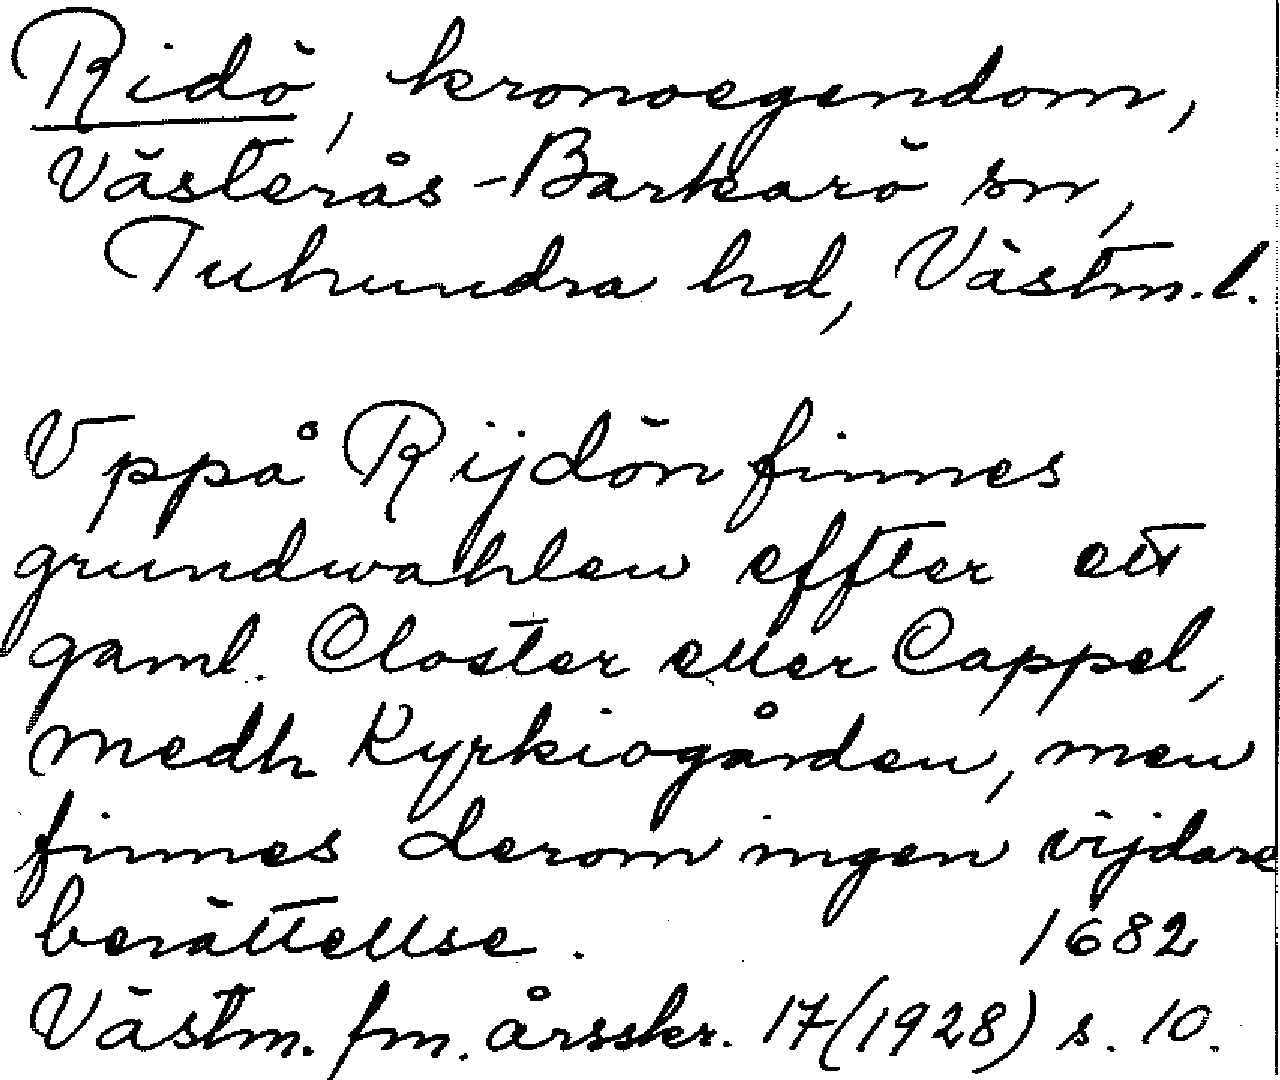 Ridö, kronoegendom,
Västerås-Barkarö sn,
Tuhundra hd, Västm.l.
Vppå Rijdön finnes
grundwahlen effter ett
gaml. Closter eller Cappel,
medh Kyrkiogården, men
finnes derom ingen vijdare
berättellse. 1682
Västm. fm. årsskr. 17(1928) s. 10.